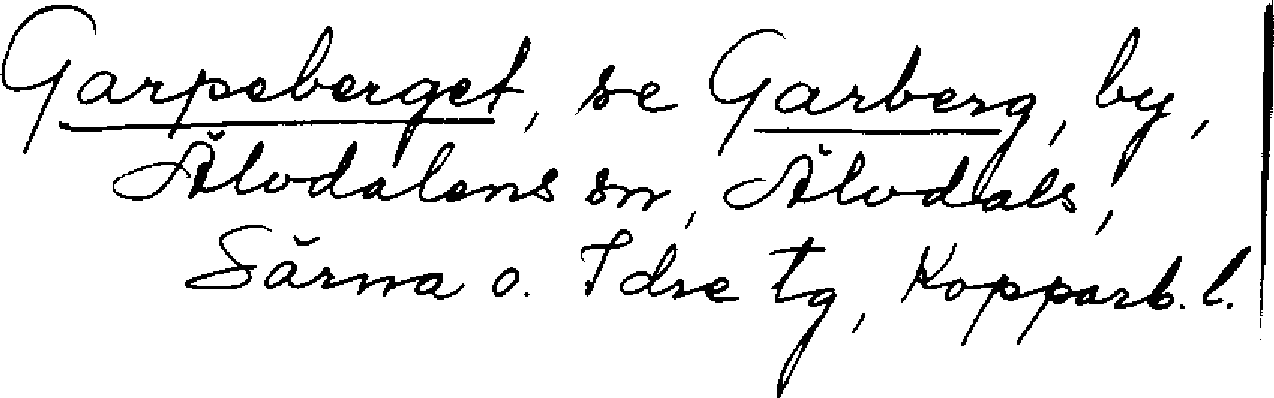 Garpeberget, se Garberg, by,
Älvdalens sn, Älvdals,
Särna o. Idre tg, Kopparb. l.